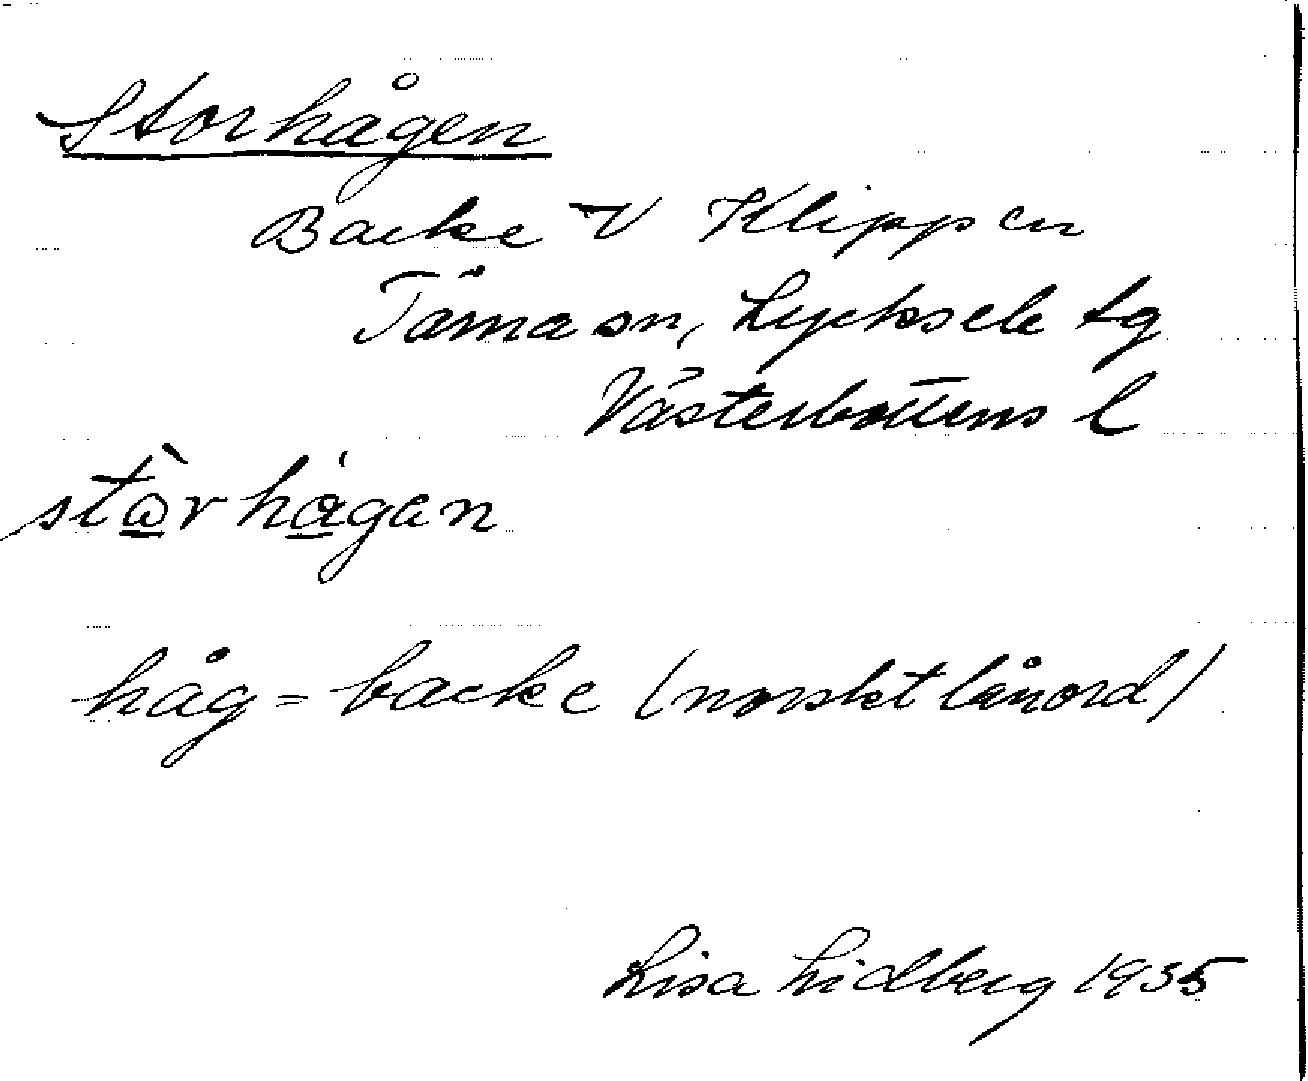 Storhågen
Backe V Klippen
Tärna sn, Lycksele tg
Västerbottens l
stòrhågan
håg = backe (norskt lånord)
Lisa Lidberg 1935